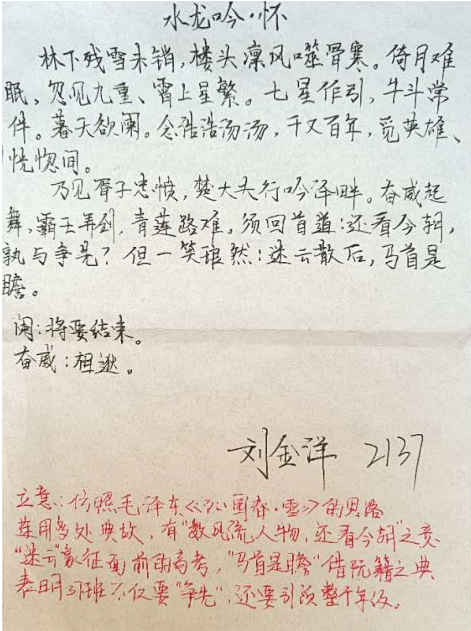 水龙吟·怀
林下残雪未销,楼头凛风噬骨寒。倚月难
眠,忽见九重、霄上星繁。七星作引,牛斗常
伴。暮天欲阑。念浩浩汤汤,千又百年,觅英雄、
恍惚间。
乃见胥子忠愤,楚大夫行吟泽畔。奋威起
舞,霸王弄剑,青莲路难。须回首道:还看今朝,
孰与争先?但一笑琅然:迷云散后,马首是
瞻。
阑:将要结束。
奋威:祖逖。
刘金洋 2137
立意:仿照毛泽东《沁园春·雪》的思路
选用多处典故,有“数风流人物,还看今朝”之意
“迷云”象征面前的高考,“马首是瞻”借阮籍之典
表明31班不仅要“争先”,还要引领整个年级。